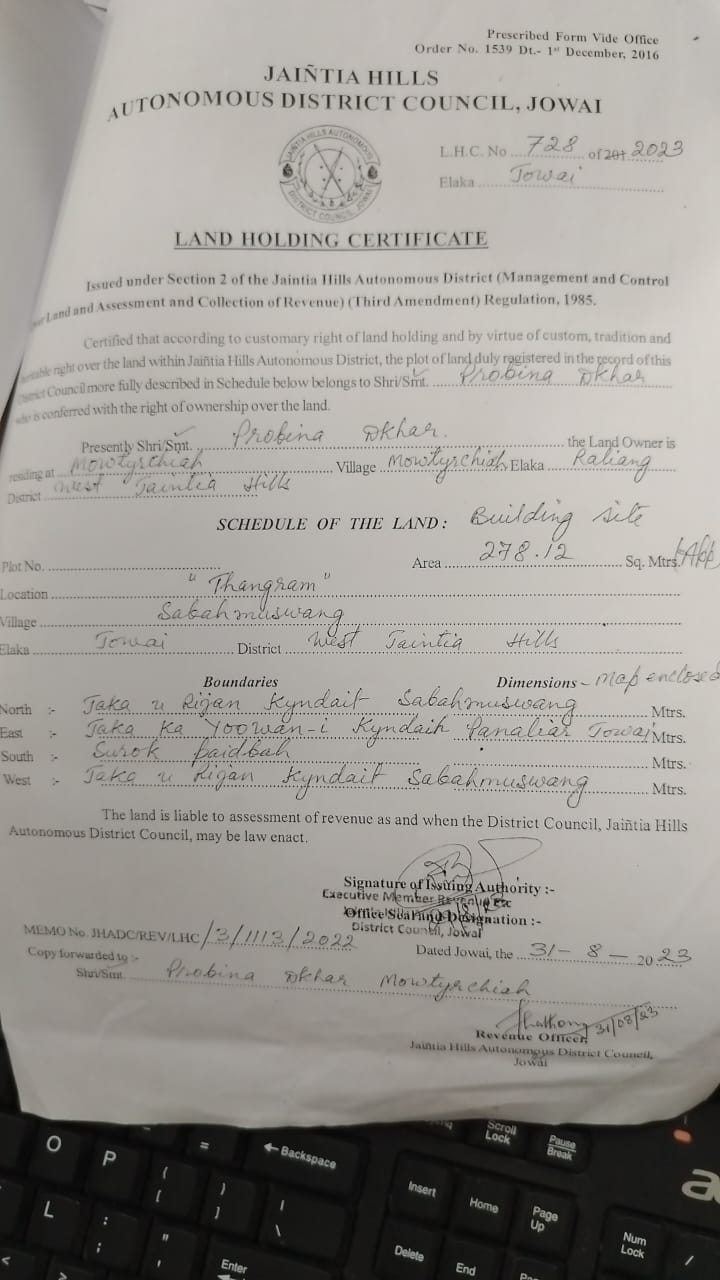 Prescribed Form Vide Office
Order No. 1539 Dt.- 1st December, 2016
JAIÑTIA HILLS
AUTONOMOUS DISTRICT COUNCIL, JOWAI
JAINTIA HILLS AUTONOMOUS
DISTRICT COUNCIL, JOWAI
L.H.C. No ... 728 ... of 201 2023
Elaka ... Jowai
LAND HOLDING CERTIFICATE
Issued under Section 2 of the Jaintia Hills Autonomous District (Management and Control
Land and Assessment and Collection of Revenue) (Third Amendment) Regulation, 1985.
Certified that according to customary right of land holding and by virtue of custom, tradition and
right over the land within Jaiñtia Hills Autonomous District, the plot of land duly registered in the record of this
District Council more fully described in Schedule below belongs to Shri/Smt. ... Probina Dkhar
who is conferred with the right of ownership over the land.
Presently Shri/Smt. ... Probina Dkhar. ... the Land Owner is
residing at ... Mowtyrchiah ... Village ... Mowtyrchiah Elaka ... Raliang
District ... West Jaintia Hills
SCHEDULE OF THE LAND : Building site
Plot No. ... Area ... 278.12 ... Sq. Mtrs.
Location ... "Thangram"
Village ... Sabahmuswang
Elaka ... Jowai ... District ... West Jaintia Hills
Boundaries Dimensions - Map enclosed
North :- Jaka u Rijan Kyndait Sabahmuswang Mtrs.
East :- Jaka Ka Yoowan-i Kyndaih Panaliar Jowai Mtrs.
South :- Surok paidbah ... Mtrs.
West :- Jaka u Rijan Kyndait Sabahmuswang ... Mtrs.
The land is liable to assessment of revenue as and when the District Council, Jaiñtia Hills
Autonomous District Council, may be law enact.
Signature of Issuing Authority :-
Executive Member Revenue Etc
Office Seal and Designation :-
District Council, Jowai
MEMO No. JHADC/REV/LHC/3/1113/2022
Dated Jowai, the ... 31-8-2023
Copy forwarded to :-
Shri/Smt. Probina Dkhar Mowtyrchiah
31/08/23
Revenue Officer
Jaiñtia Hills Autonomous District Council,
Jowai
Scroll Lock
Pause Break
O
P
{ [
=
} ]
← Backspace
| \
Insert
Home
Page Up
Num Lock
/
L
: ;
" '
Enter
Delete
End
<
>
a